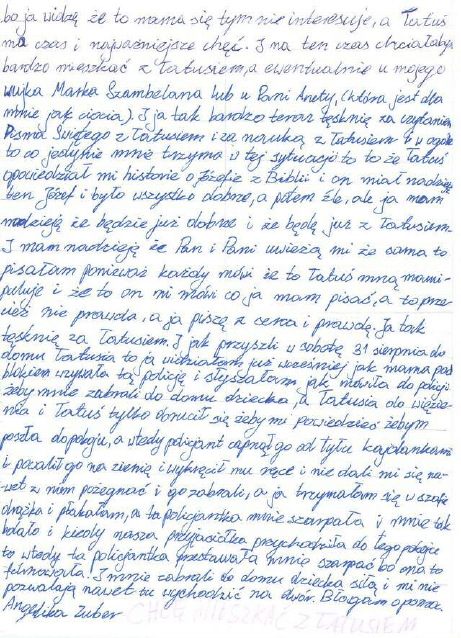 bo ja widzę że to mama się tym nie interesuje, a Tatuś
ma czas i najważniejsze chęć. I na ten czas chciałabym
bardzo mieszkać z Tatusiem, a ewentualnie u mojego
wujka Marka Szambelana lub u Pani Anety, (która jest dla
mnie jak ciocia). I ja tak bardzo teraz tęsknię za czytaniem
Pisma Świętego z Tatusiem i za nauką z Tatusiem i w ogóle
to co jedynie mnie trzyma w tej sytuacji to to że Tatuś
opowiedział mi historię o Józefie z Biblii i on miał nadzieję
ten Józef i było wszystko dobrze, a potem źle, ale ja mam
nadzieję że będzie już dobrze i że będę już z Tatusiem.
I mam nadzieję że Pan i Pani uwierzą mi że sama to
pisałam ponieważ każdy mówi że to Tatuś mną mani-
puluje i że to on mi mówi co ja mam pisać, a to prze-
cież nie prawda, a ja piszę z serca i prawdę. Ja tak
tęsknię za Tatusiem. I jak przyszli w sobotę 31 sierpnia do
domu Tatusia to ja widziałam już wcześniej jak mama pod
blokiem wzywała tą policję i słyszałam jak mówiła do policji
żeby mnie zabrali do domu dziecka, a Tatusia do więzie-
nia i Tatuś tylko odwrócił się żeby mi powiedzieć żebym
poszła do pokoju, a wtedy policjant capnął go od tyłu kajdankami
i powalił go na ziemię i wykręcił mu ręce i nie dali mi się na-
wet z nim pożegnać i go zabrali, a ja trzymałam się w szafie
drążka i płakałam, a ta policjantka mnie szarpała i mnie tak
bolało i kiedy nasza przyjaciółka przychodziła do tego pokoju
to wtedy ta policjantka przestawała mnie szarpać bo ona to
filmowała. I mnie zabrali do domu dziecka siłą i mi nie
pozwalają nawet tu wychodzić na dwór. Błagam o pomoc.
Angelika Zuber
CHCĘ MIESZKAĆ Z TATUSIEM